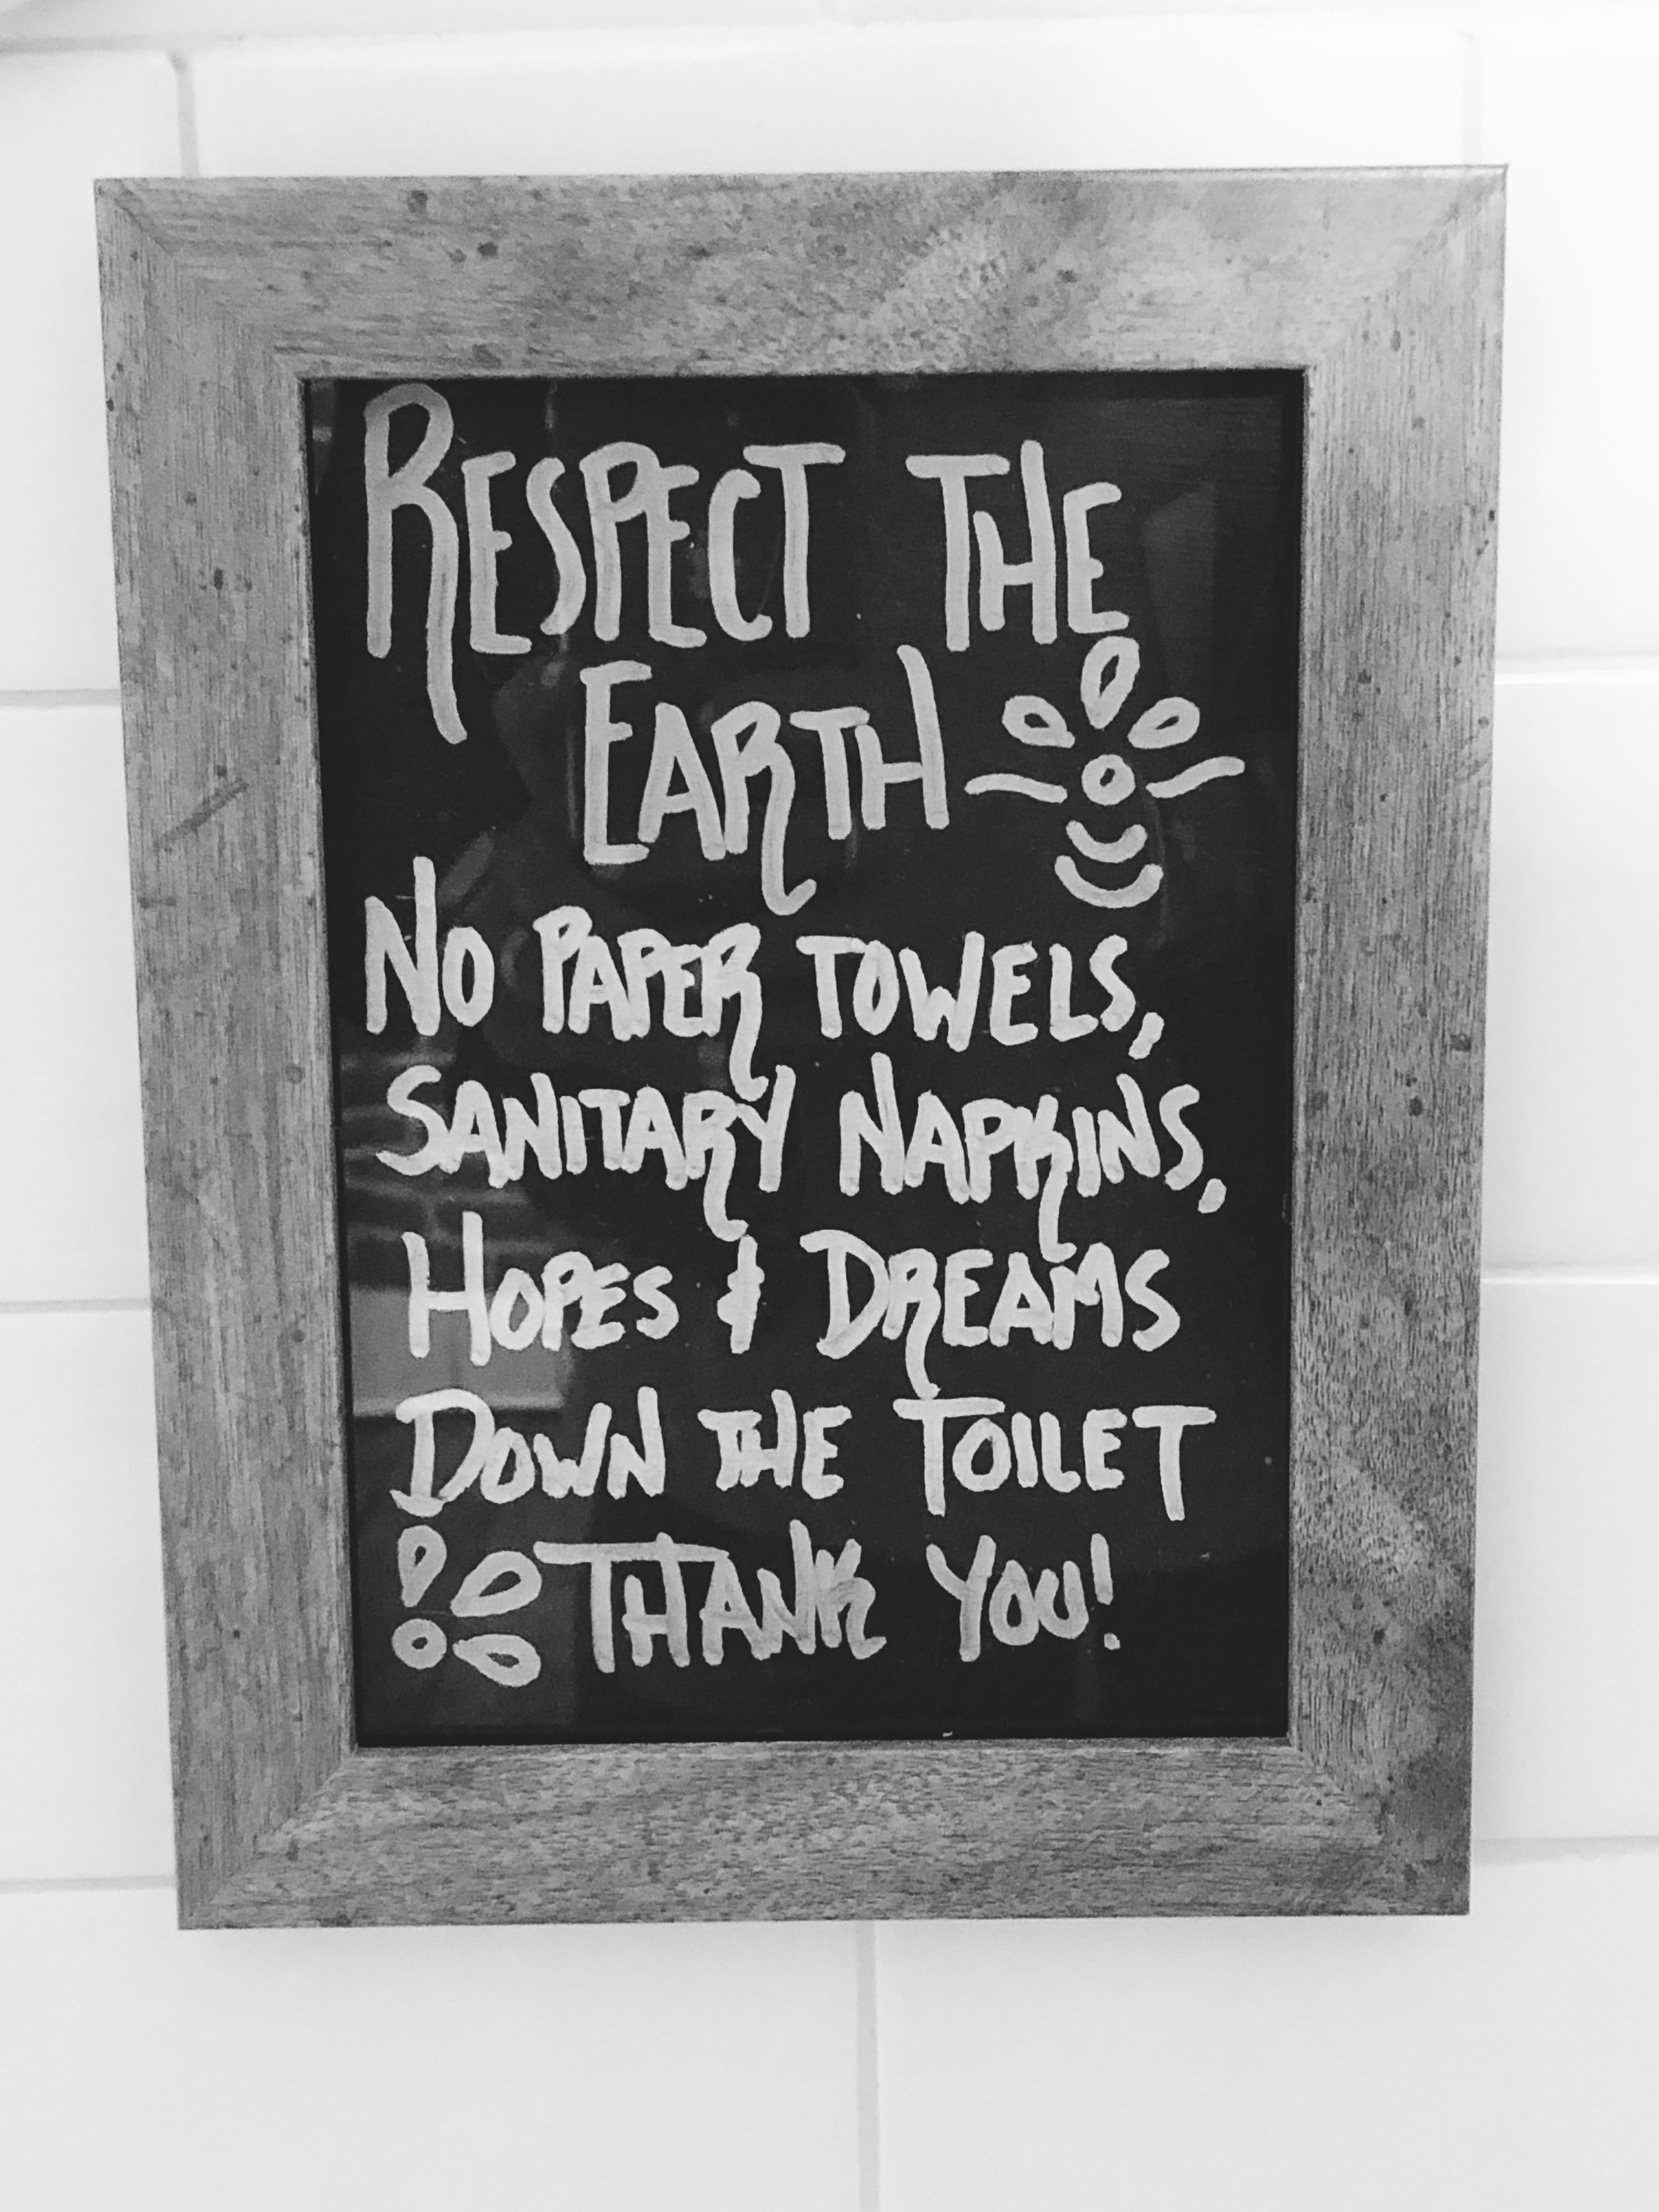 RESPECT THE
EARTH
NO PAPER TOWELS,
SANITARY NAPKINS,
HOPES & DREAMS
DOWN THE TOILET
THANK YOU!